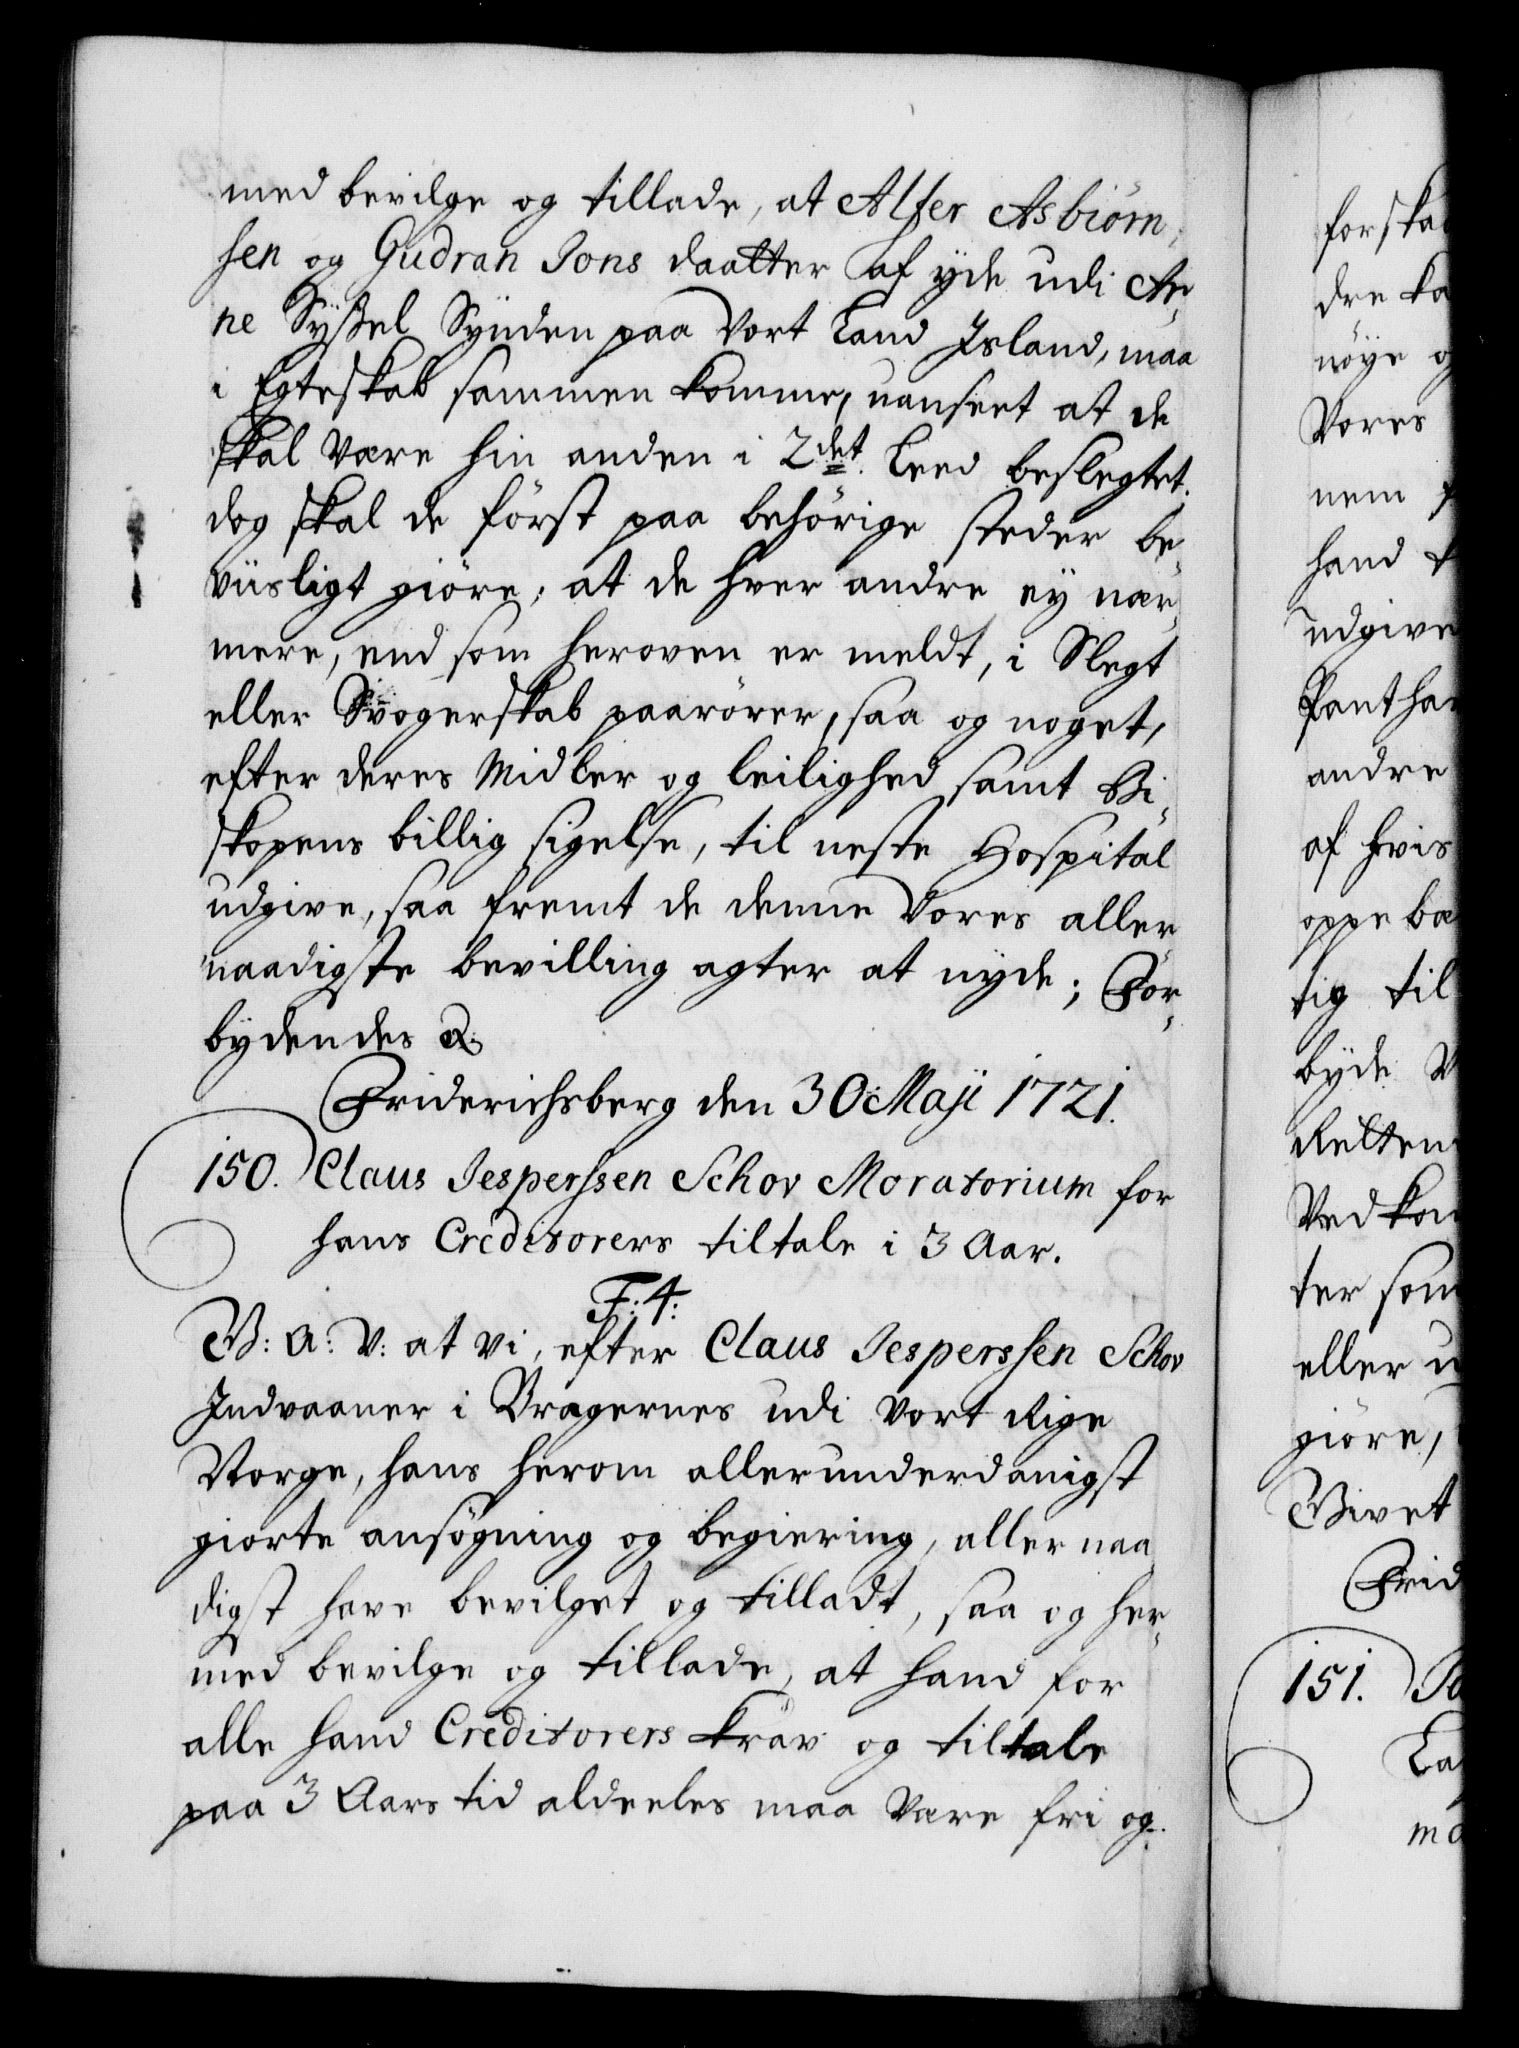 med bevilge og tillade, at Alfer Asbiörn-
sen og Gudran Jons daatter af ÿde udi Ar-
ne Sÿssel Sÿnden paa Vort Land Island, maa
i Egteskab sammen komme, uanseet at de
skal være hin anden i 2det Leed beslegtet.
dog skal de först paa behörige steder be-
viisligt giöre, at de hver andre eÿ nær-
mere, end som heroven er meldt, i Slegt
eller Svogerskab paarörer, saa og noget,
efter deres Midler og leilighed samt Bi-
skopens billig sigelse, til neste Hospital
udgive, saa fremt de denne Vores aller
naadigste bevilling agter at nyde; For-
bydendes &.
Friderichsberg den 30 Maji 1721.
150. Claus Jesperssen Schov Moratorium for
hans Creditorers tiltale i 3 Aar.
F: 4:
V: A: V: at vi, efter Claus Jesperssen Schov
Indvaaner i Bragernes udi Vort Rige
Norge, hans herom allerunderdanigst
giorte ansögning og begiering, allernaa
digst have bevilget og tilladt, saa og her-
med bevilge og tillade, at hand for
alle hand Creditorers krav og tiltale
paa 3 Aars tid aldeeles maa være fri og
forska
dre ka
nöye og
Vores
nem
hand
udgive
Pant ha
andre
af hvis
oppe bæ
tig til
byde
Retten
Ved kom
ter som
eller u
giöre,
Vivet
Frid
151.
La
ma